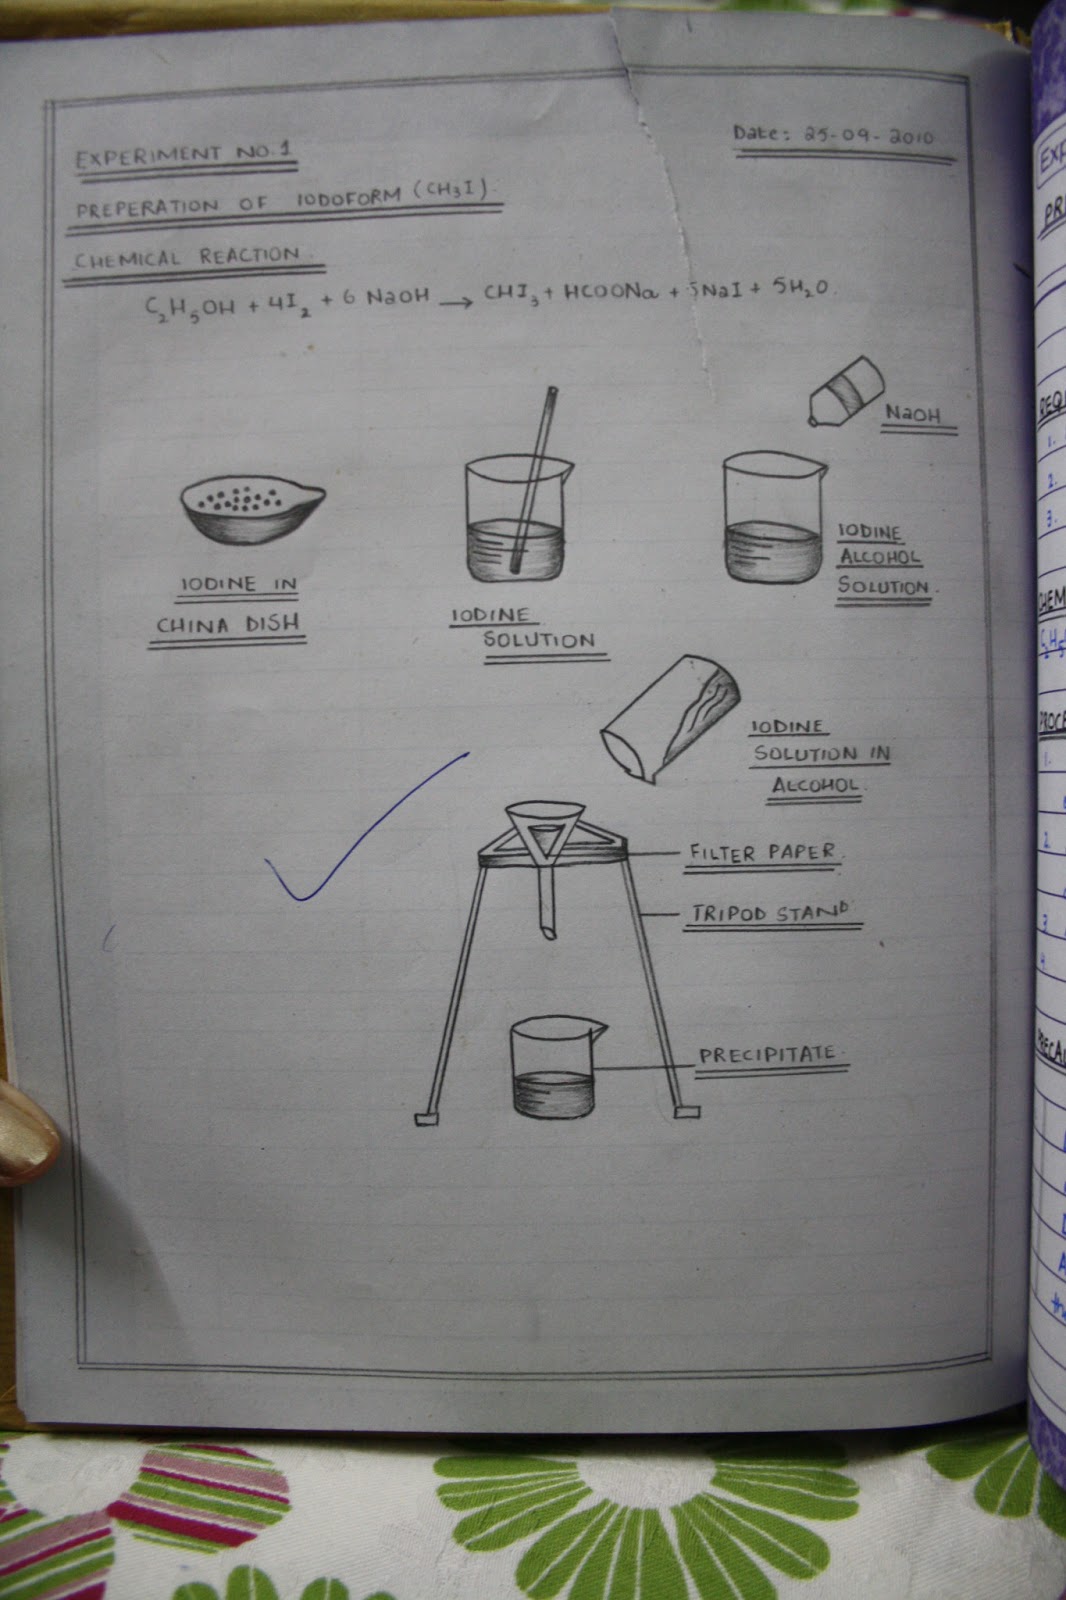 Date: 25-09-2010
EXPERIMENT NO.1
PREPERATION OF IODOFORM (CH3I).
CHEMICAL REACTION.
C2H5OH + 4I2 + 6 NaOH → CHI3 + HCOONa + 5NaI + 5H2O.
NaOH
IODINE IN
CHINA DISH
IODINE
SOLUTION
IODINE
ALCOHOL
SOLUTION.
IODINE
SOLUTION IN
ALCOHOL.
FILTER PAPER.
TRIPOD STAND
PRECIPITATE.
1.
2.
3.
1.
2.
3.
4.